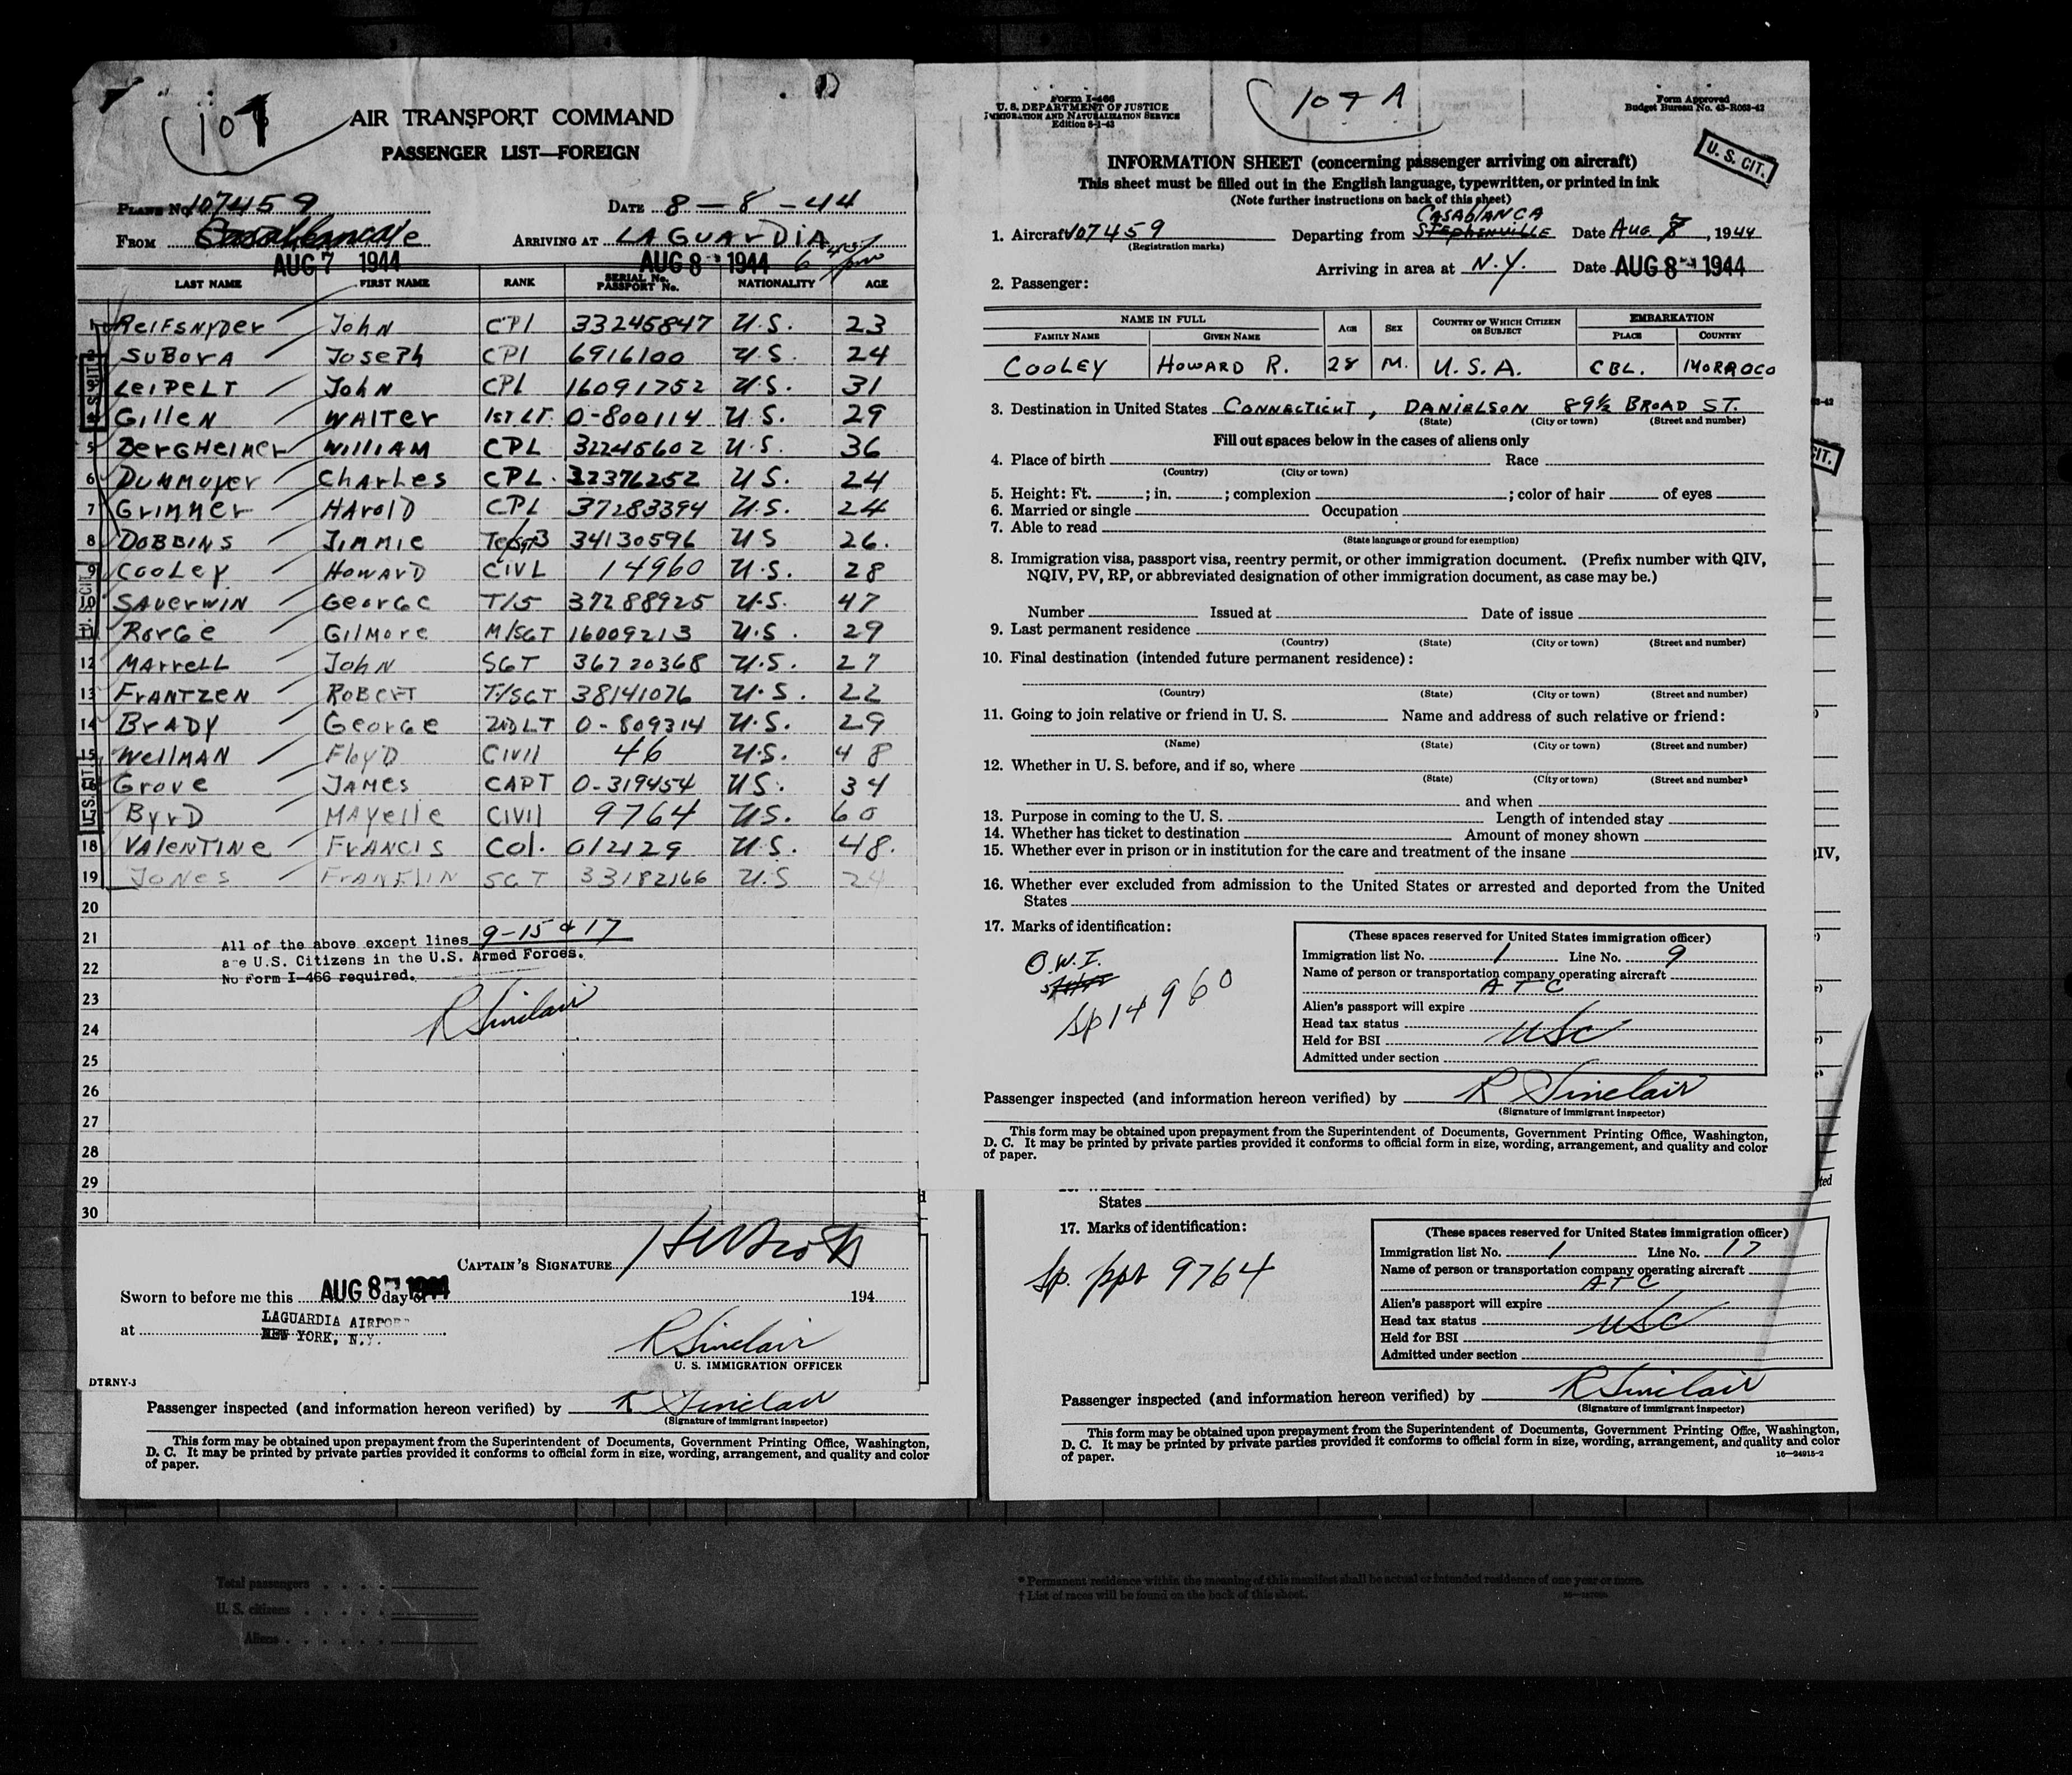 107
AIR TRANSPORT COMMAND
PASSENGER LIST—FOREIGN
PLANE No. 107459 DATE 8-8-44
FROM Casablanca ARRIVING AT LAGUARDIA
AUG 7 1944 AUG 8 1944
LAST NAME FIRST NAME RANK SERIAL No. PASSPORT No. NATIONALITY AGE
1 ReifSNYDer John CPl 33245847 U.S. 23
2 SuBorA Joseph CPl 6916100 U.S. 24
3 LeIPeLT John CPL 16091752 U.S. 31
4 Gillen WAlTer 1st LT. O-800114 U.S. 29
5 BerGHeiMer WilliAM CPL 32245602 U.S. 36
6 DuMMoyer ChArles CPL. 32376252 U.S. 24
7 GriMMer HArolD CPL 37283394 U.S. 24
8 DOBBINS JiMMie Tec/Sgt3 34130596 U.S 26.
9 CooLey HowArD CIVL 14960 U.S. 28
10 SAuerwIN GeorGe T/5 37288925 U.S. 47
11 RorGe GilMore M/SGT 16009213 U.S. 29
12 MArreLL John SGT 36720368 U.S. 27
13 FrANTZEN RoBerT T/SGT 38141076 U.S. 22
14 BrADY GeorGe 2ND LT O-809314 U.S. 29
15 WellMAN FloyD Civil 46 U.S. 48
16 Grove JAMes CAPT O-319454 US. 34
17 ByrD MAYelle Civil 9764 U.S. 60
18 VAleNTINe FrANCIS Col. 012129 U.S. 48.
19 JoNes FrANKliN SGT 33182166 U.S 24
20
21
22
23
24
25
26
27
28
29
30
All of the above except lines 9-15 & 17
are U.S. Citizens in the U.S. Armed Forces.
No Form I-466 required.
R Sinclair
CAPTAIN'S SIGNATURE
Sworn to before me this AUG 8 1944 day of 194
at LAGUARDIA AIRPORT
NEW YORK, N.Y.
R Sinclair
U. S. IMMIGRATION OFFICER
DTRNY-3
Passenger inspected (and information hereon verified) by R Sinclair
(Signature of immigrant inspector)
This form may be obtained upon prepayment from the Superintendent of Documents, Government Printing Office, Washington,
D. C. It may be printed by private parties provided it conforms to official form in size, wording, arrangement, and quality and color
of paper.
Form I-466
U. S. DEPARTMENT OF JUSTICE
IMMIGRATION AND NATURALIZATION SERVICE
Edition 8-1-43
107 A
Form Approved
Budget Bureau No. 43-R063-42
U. S. CIT.
INFORMATION SHEET (concerning passenger arriving on aircraft)
This sheet must be filled out in the English language, typewritten, or printed in ink
(Note further instructions on back of this sheet)
CASABLANCA
1. Aircraft 107459 Departing from Stephenville Date Aug. 7, 1944
(Registration marks)
Arriving in area at N.Y. Date AUG 8 1944
2. Passenger:
NAME IN FULL AGE SEX COUNTRY OF WHICH CITIZEN OR SUBJECT EMBARKATION
FAMILY NAME GIVEN NAME PLACE COUNTRY
COOLEY HOWARD R. 28 M. U.S.A. CBL. MORROCO
3. Destination in United States CONNECTICUT, DANIELSON 89½ BROAD ST.
(State) (City or town) (Street and number)
Fill out spaces below in the cases of aliens only
4. Place of birth Race
(Country) (City or town)
5. Height: Ft. ; in. ; complexion ; color of hair of eyes
6. Married or single Occupation
7. Able to read
(State language or ground for exemption)
8. Immigration visa, passport visa, reentry permit, or other immigration document. (Prefix number with QIV,
NQIV, PV, RP, or abbreviated designation of other immigration document, as case may be.)
Number Issued at Date of issue
9. Last permanent residence
(Country) (State) (City or town) (Street and number)
10. Final destination (intended future permanent residence):
(Country) (State) (City or town) (Street and number)
11. Going to join relative or friend in U. S. Name and address of such relative or friend:
(Name) (State) (City or town) (Street and number)
12. Whether in U. S. before, and if so, where
(State) (City or town) (Street and number)
and when
13. Purpose in coming to the U. S. Length of intended stay
14. Whether has ticket to destination Amount of money shown
15. Whether ever in prison or in institution for the care and treatment of the insane
16. Whether ever excluded from admission to the United States or arrested and deported from the United
States
17. Marks of identification:
O.W.I.
Sp 14960
(These spaces reserved for United States immigration officer)
Immigration list No. 1 Line No. 9
Name of person or transportation company operating aircraft
ATC
Alien's passport will expire
Head tax status USC
Held for BSI
Admitted under section
Passenger inspected (and information hereon verified) by R Sinclair
(Signature of immigrant inspector)
This form may be obtained upon prepayment from the Superintendent of Documents, Government Printing Office, Washington,
D. C. It may be printed by private parties provided it conforms to official form in size, wording, arrangement, and quality and color
of paper.
States
17. Marks of identification:
Sp. ppt 9764
(These spaces reserved for United States immigration officer)
Immigration list No. 1 Line No. 17
Name of person or transportation company operating aircraft
ATC
Alien's passport will expire
Head tax status USC
Held for BSI
Admitted under section
Passenger inspected (and information hereon verified) by R Sinclair
(Signature of immigrant inspector)
This form may be obtained upon prepayment from the Superintendent of Documents, Government Printing Office, Washington,
D. C. It may be printed by private parties provided it conforms to official form in size, wording, arrangement, and quality and color
of paper.
16—24915-2
Total passengers
U. S. citizens
Aliens
* Permanent residence within the meaning of this manifest shall be actual or intended residence of one year or more.
† List of races will be found on the back of this sheet.